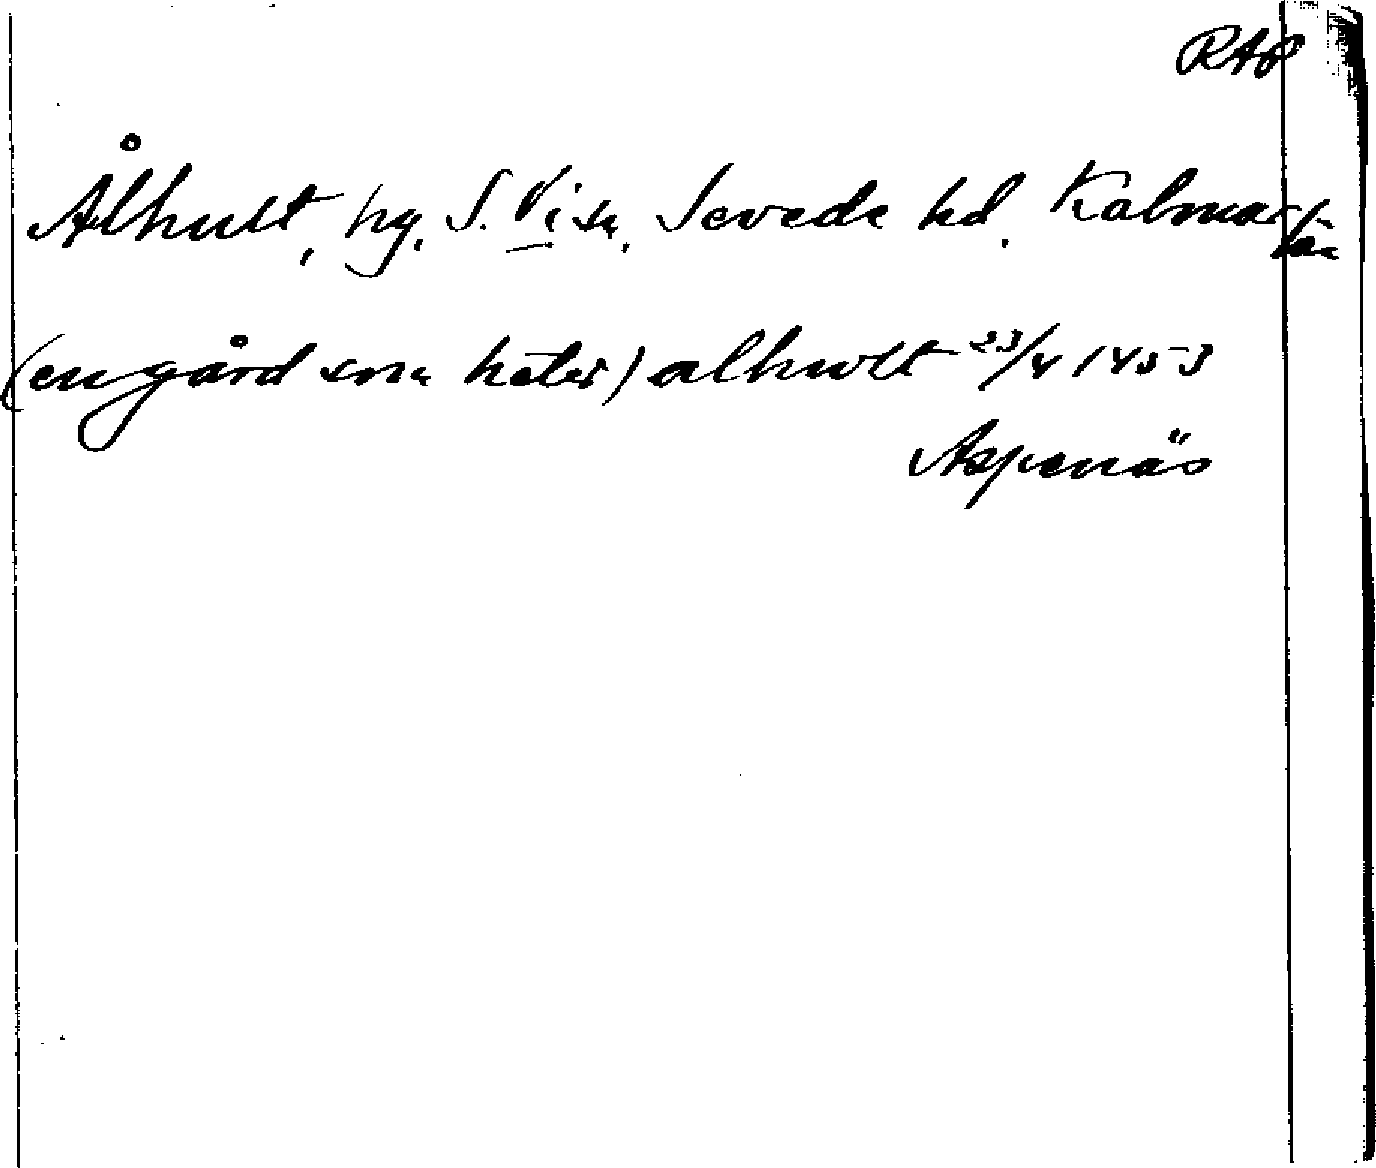 RAP
Ålhult, hg, S. Vi sn, Sevede hd. Kalmar län
(en gård som heter) alhult 23/4 1453
Aspenäs